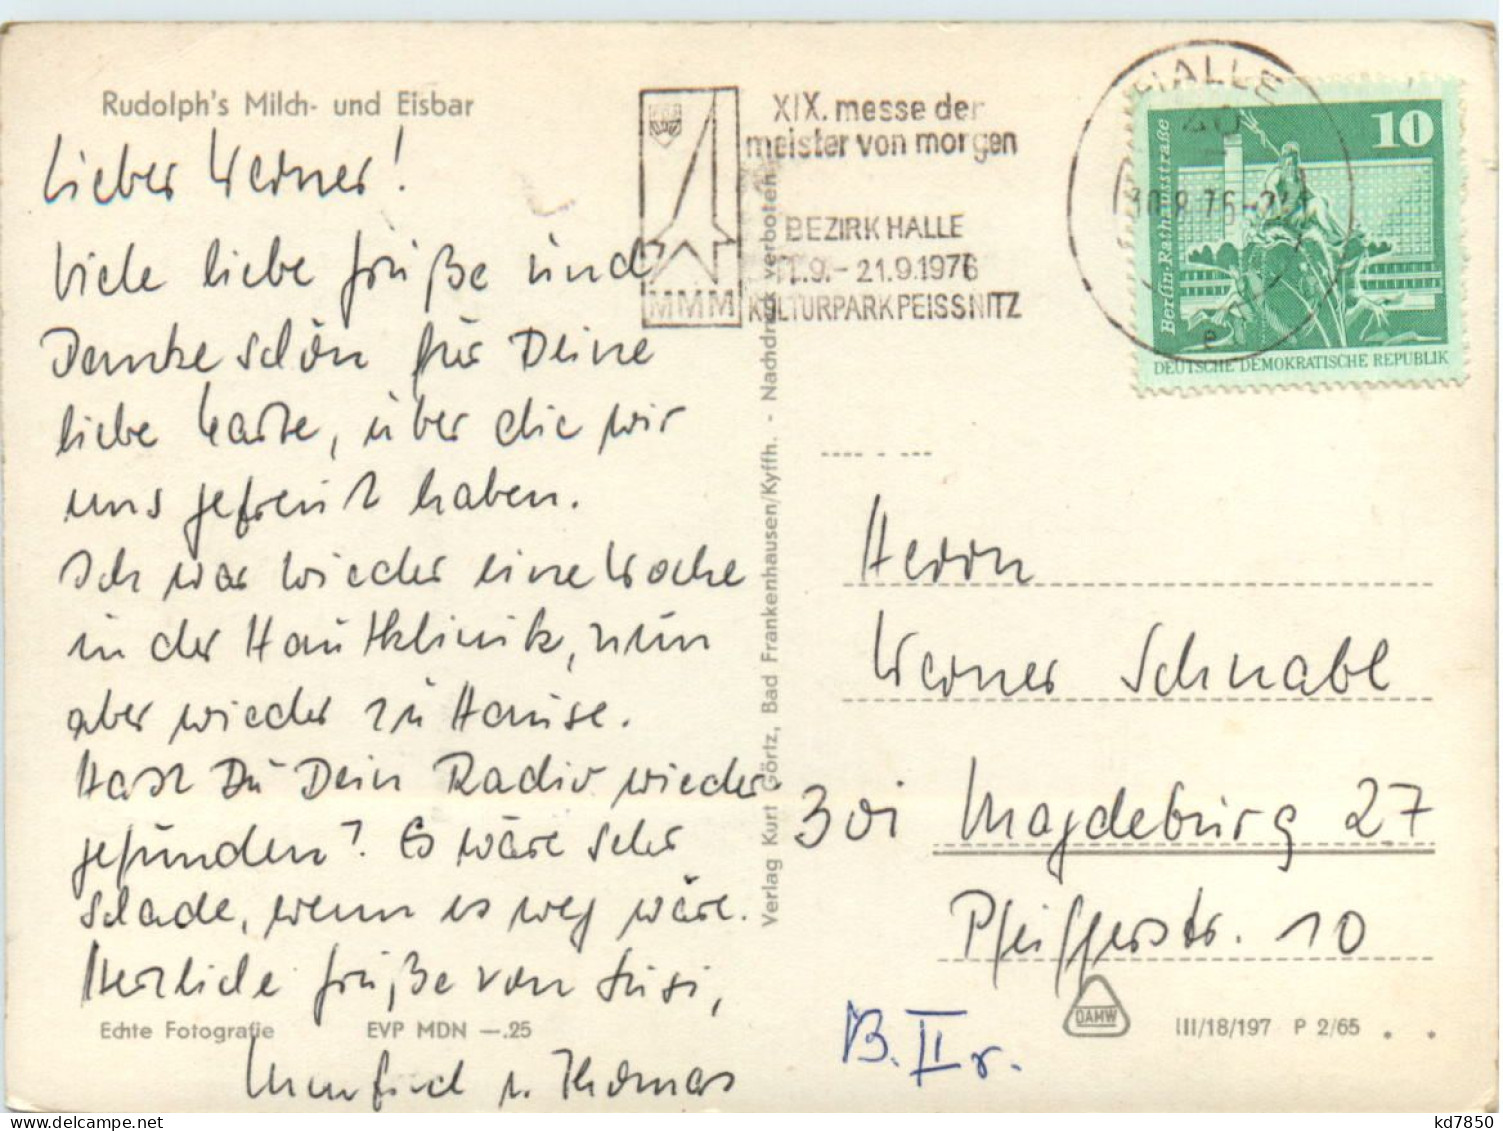 Rudolph's Milch- und Eisbar
Lieber Werner!
Viele liebe Grüße und
Dankeschön für Deine
liebe Karte, über die wir
uns gefreut haben.
Ich war wieder eine Woche
in der Hautklinik, nun
aber wieder zu Hause.
Hast Du Dein Radio wieder
gefunden? Es wäre sehr
schade, wenn es weg wäre.
Herzliche Grüße von Susi,
Manfred u. Thomas
Echte Fotografie EVP MDN —.25
Verlag Kurt Görtz, Bad Frankenhausen/Kyffh. - Nachdruck verboten
MMM
XIX. messe der
meister von morgen
BEZIRK HALLE
11.9.- 21.9.1976
KULTURPARK PEISSNITZ
HALLE
40
30.8.76
e
10
Berlin-Rathausstraße
DEUTSCHE DEMOKRATISCHE REPUBLIK
Herrn
Werner Schnabl
301 Magdeburg 27
Pfeifferstr. 10
B. II r.
DAMW
III/18/197 P 2/65
kd7850
delcampe.net